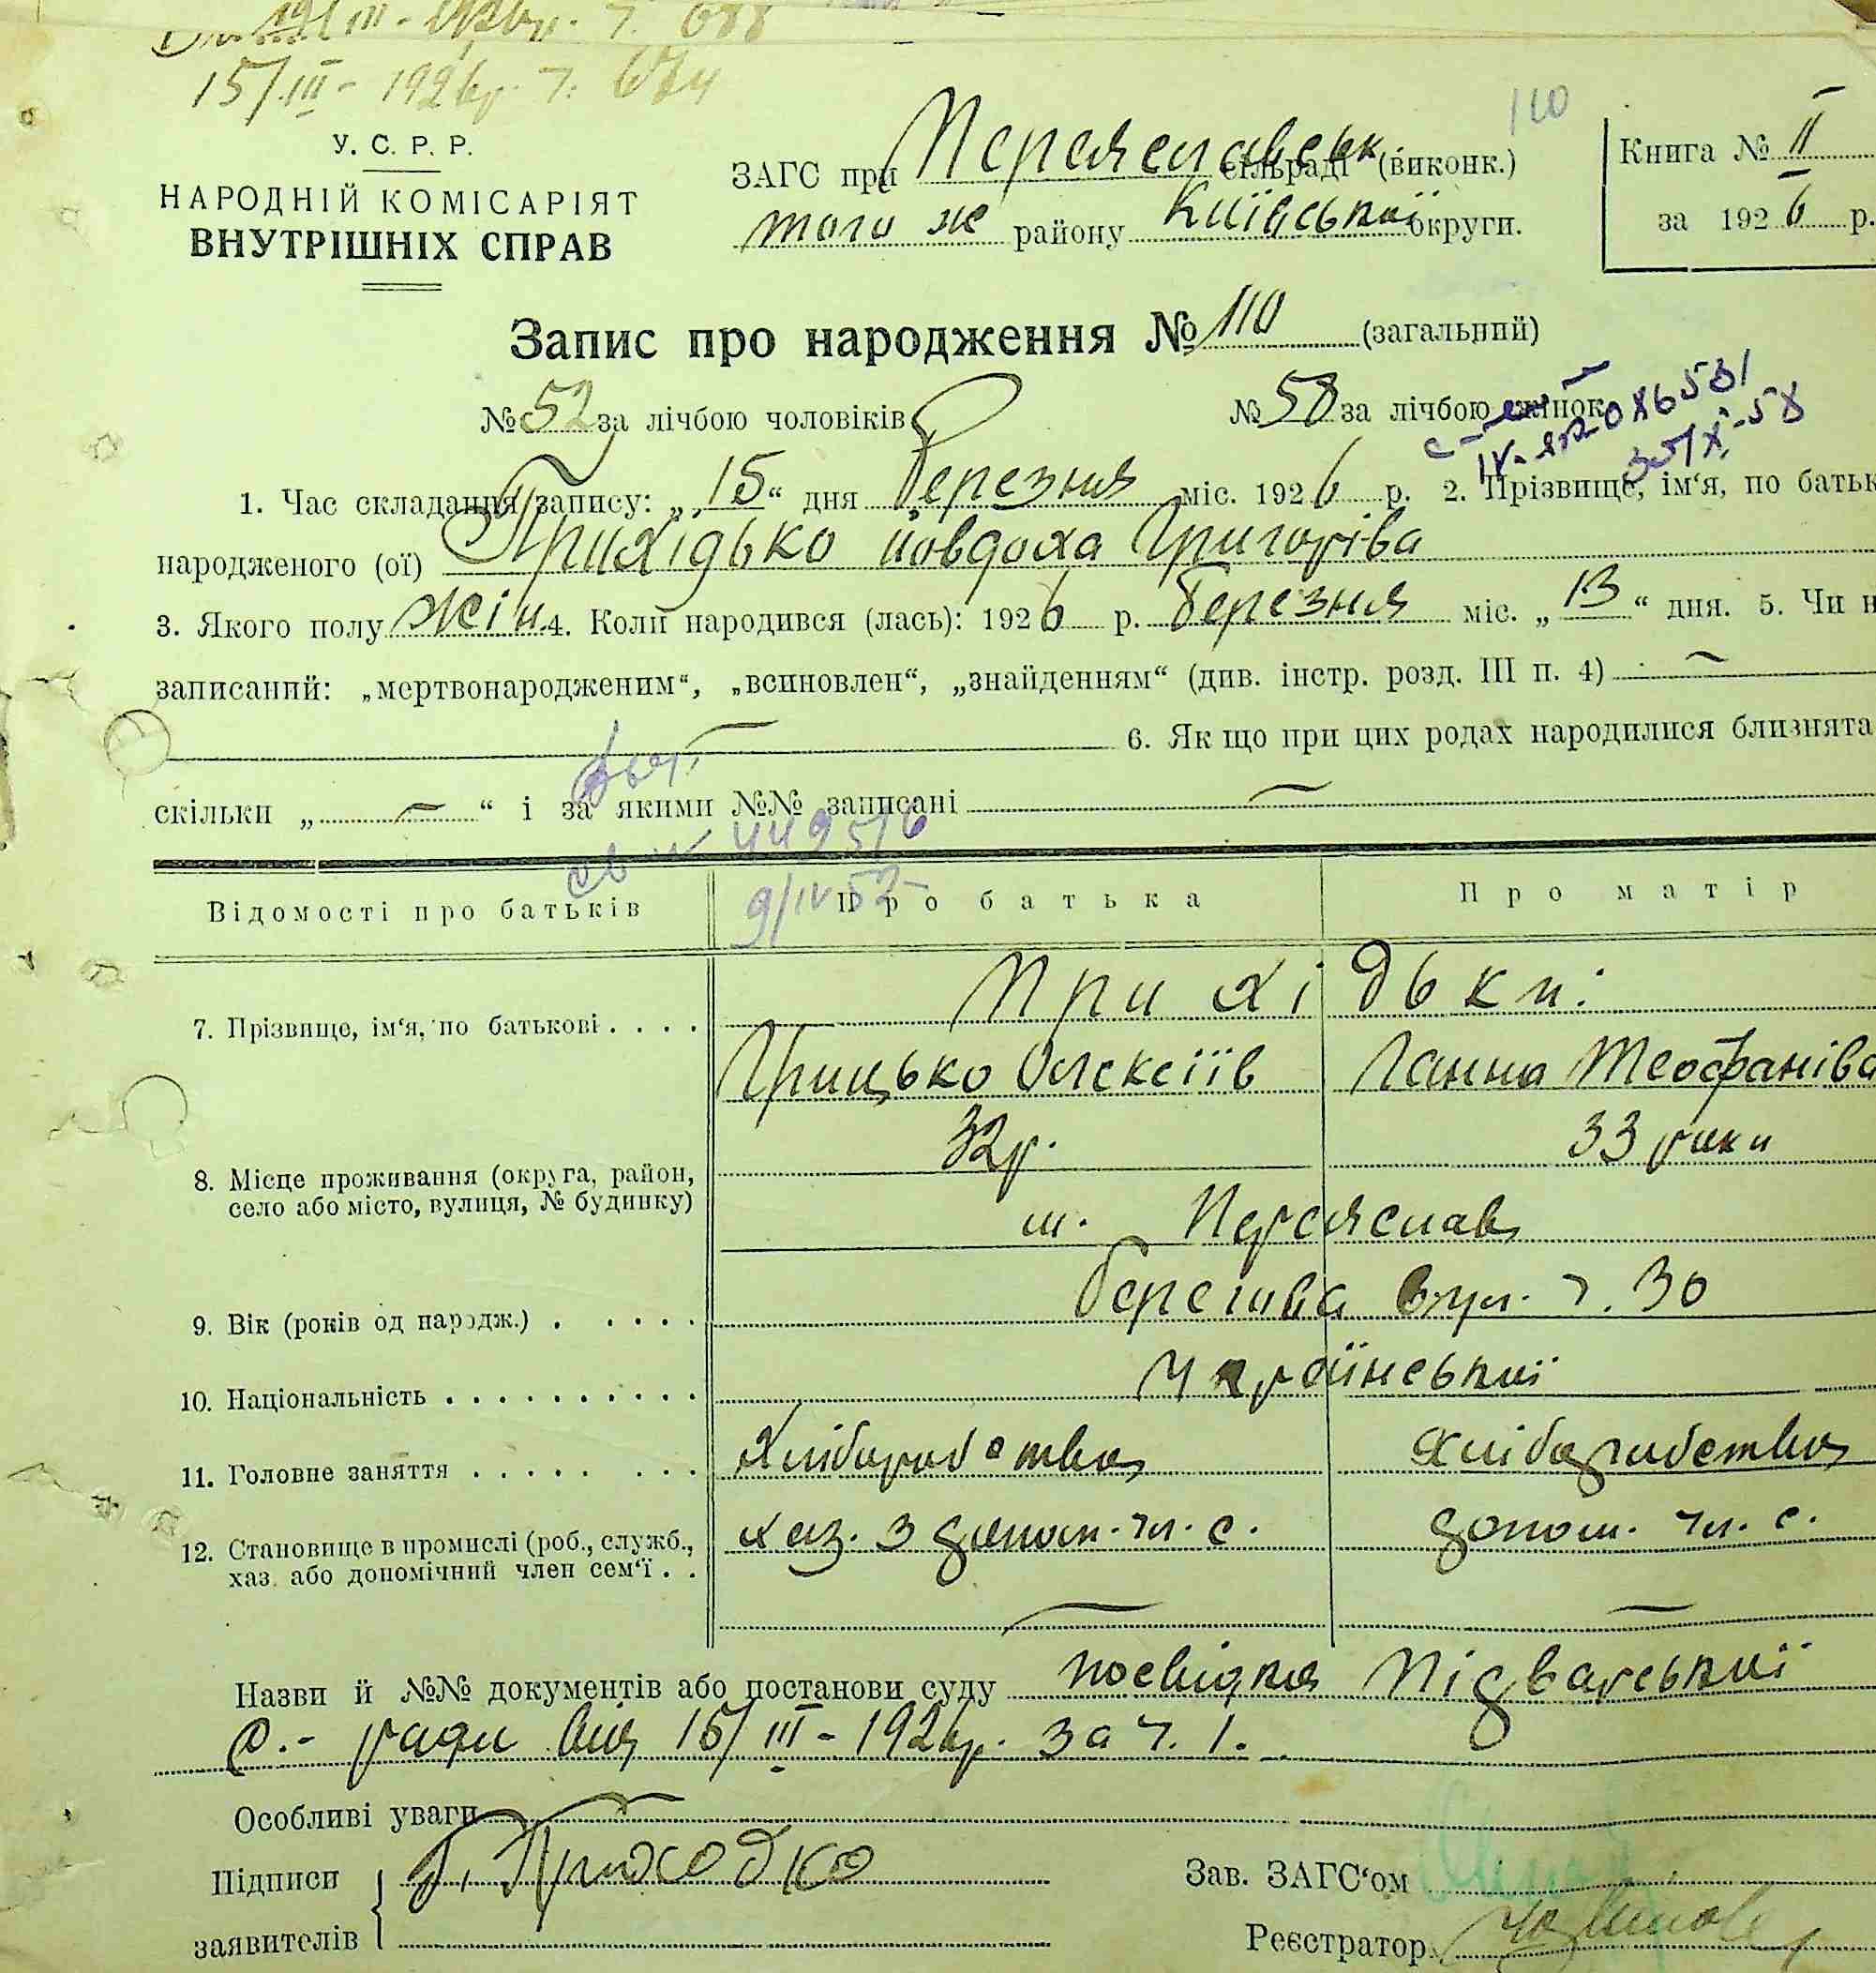 15/III - 1926р. ч. 674
110
У. С. Р. Р.
НАРОДНІЙ КОМІСАРІЯТ
ВНУТРІШНІХ СПРАВ
ЗАГС при Переяславськ сільраді (виконк.)
того же району Київської округи.
Книга № II
за 1926 р.
Запис про народження № 110 (загальний)
№ 52 за лічбою чоловіків № 58 за лічбою жінок
1. Час складання запису: „15“ дня березня міс. 1926 р. 2. Прізвище, ім‘я, по батьк
народженого (ої) Прихідько Йовдоха Григорівa
3. Якого полу жін. 4. Коли народився (лась): 1926 р. березня міс. „13“ дня. 5. Чи н
записаний: „мертвонародженим“, „всиновлен“, „знайденням“ (див. інстр. розд. III п. 4) —
— 6. Якщо при цих родах народилися близнята
скільки „ — “ і за якими №№ записані —
449516
9/IV 52
Відомості про батьків Про батька Про матір
7. Прізвище, ім‘я, по батькові . . . . Прихідьки:
Грицько Олексіїв Ганна Теофанівa
32р. 33 роки
8. Місце проживання (округа, район,
село або місто, вулиця, № будинку)
м. Переяслав
9. Вік (років од народж.) . . . . . Берегова вул. ч. 30
10. Національність . . . . . . . . . . Української
11. Головне заняття . . . . . . . . Хліборобство Хліборобство
12. Становище в промислі (роб., служб.,
хаз. або допомічний член сем‘ї . . хаз. з допом. чл. с. допом. чл. с.
— —
Назви й №№ документів або постанови суду посвідка Підварської
с.- ради від 15/III - 1926р. за ч. 1.
Особливі уваги —
Підписи Г. Приходко
заявителів
Зав. ЗАГС‘ом
Реєстратор